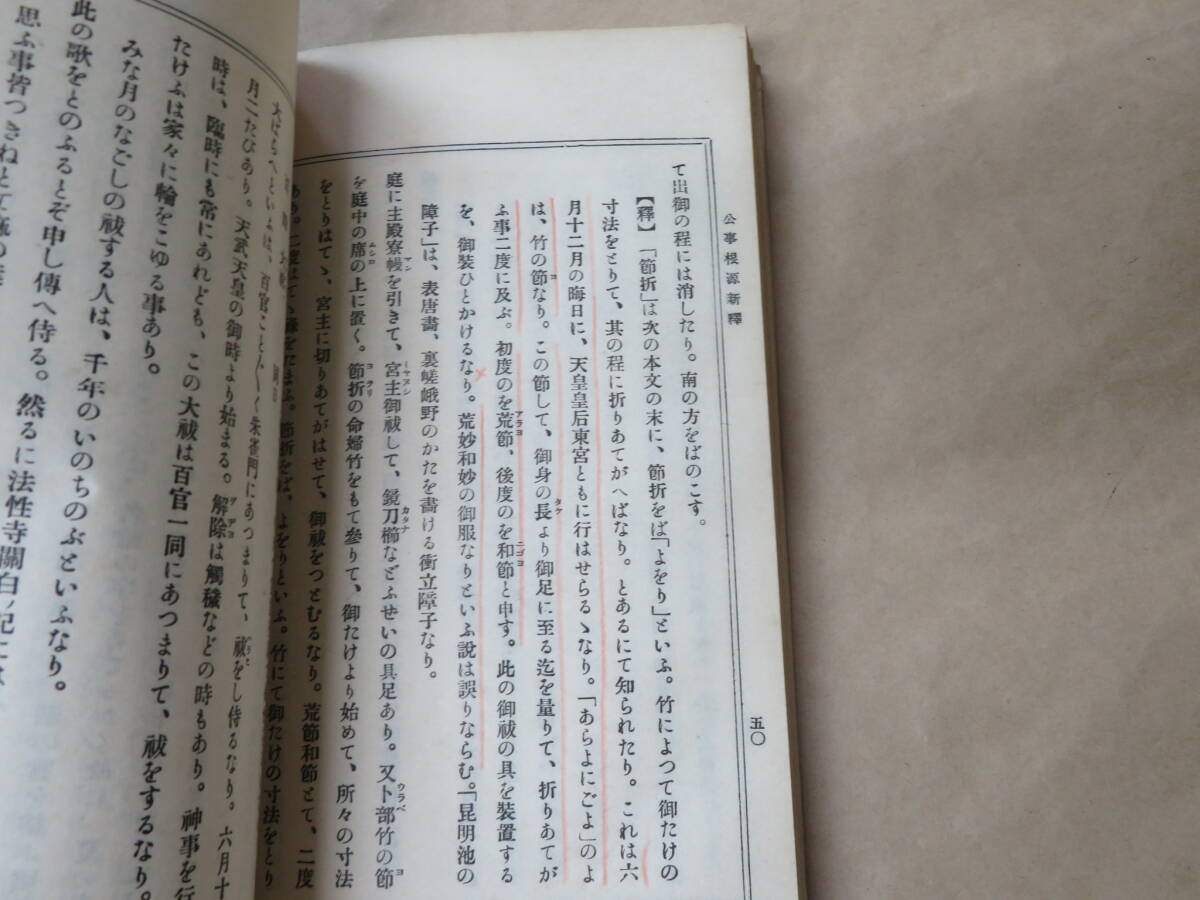 公事根源新釋
五〇
て出御の程には消したり。南の方をばのこす。
【釋】「節折」は次の本文の末に、節折をば「よをり」といふ。竹によつて御たけの
寸法をとりて、其の程に折りあてがへばなり。とあるにて知られたり。これは六
月十二月の晦日に、天皇皇后東宮ともに行はせらるゝなり。「あらよにごよ」のよ
は、竹の節なり。この節して、御身の長より御足に至る迄を量りて、折りあてが
ふ事二度に及ぶ。初度のを荒節、後度のを和節と申す。此の御祓の具を裝置する
を、御裝ひとかけるなり。荒妙和妙の御服なりといふ説は誤りならむ。「昆明池の
障子」は、表唐畵、裏嵯峨野のかたを畵ける衝立障子なり。
庭に主殿寮幔を引きて、宮主御祓して、鏡刀櫛などふせいの具足あり。又卜部竹の節
を庭中の席の上に置く。節折の命婦竹をもて參りて、御たけより始めて、所々の寸法
をとりはてゝ、宮主に切りあてがはせて、御祓をつとむるなり。荒節和節とて、二度
あり。二度はてゝ祿をたまふ。節折をば、よをりといふ。竹にて御たけの寸法をとり
大はらへといふは、百官ことぐ＼く朱雀門にあつまりて、祓をし侍るなり。六月十
月二たびあり。天武天皇の御時より始まる。解除は觸穢などの時もあり。神事を行
時は、臨時にも常にあれども、この大祓は百官一同にあつまりて、祓をするなり。
たけふは家々に輪をこゆる事あり。
みな月のなごしの祓する人は、千年のいのちのぶといふなり。
此の歌をとのふるとぞ申し傳へ侍る。然るに法性寺關白ノ記には
思ふ事皆つきねとて麻の